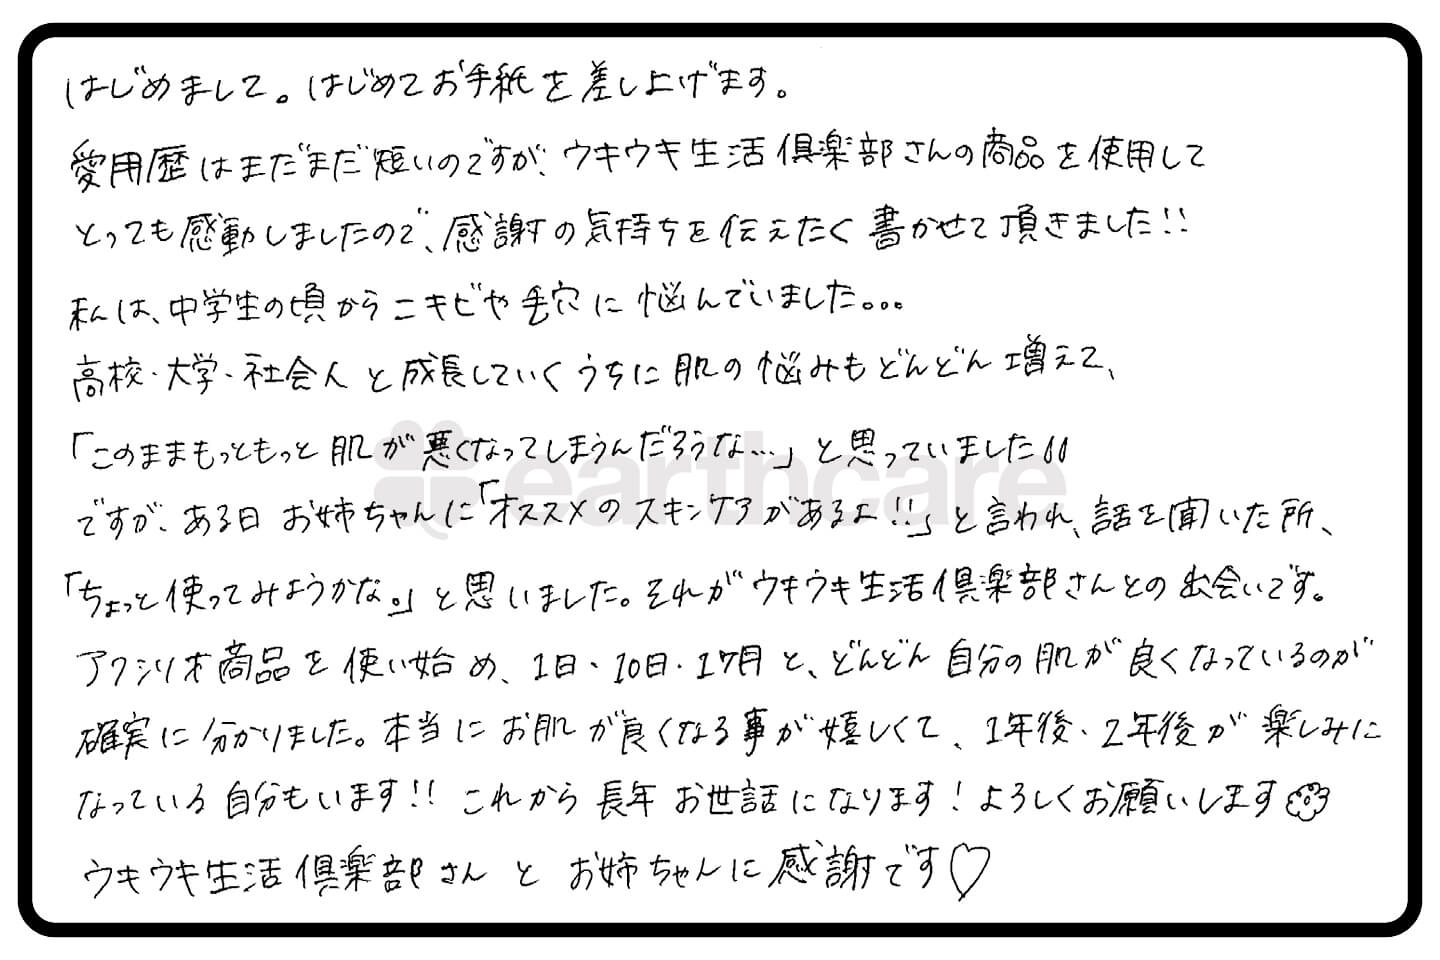 はじめまして。はじめてお手紙を差し上げます。
愛用歴はまだまだ短いのですが、ウキウキ生活倶楽部さんの商品を使用して
とっても感動しましたので、感謝の気持ちを伝えたく書かせて頂きました!!
私は、中学生の頃からニキビや毛穴に悩んでいました...
高校・大学・社会人と成長していくうちに肌の悩みもどんどん増えて、
「このままもっともっと肌が悪くなってしまうんだろうな…」と思っていました!!
ですが、ある日お姉ちゃんに「オススメのスキンケアがあるよ!!」と言われ、話を聞いた所、
「ちょっと使ってみようかな。」と思いました。それがウキウキ生活倶楽部さんとの出会いです。
アクシリオ商品を使い始め、1日・10日・1ヶ月と、どんどん自分の肌が良くなっているのが
確実に分かりました。本当にお肌が良くなる事が嬉しくて、1年後・2年後が楽しみに
なっている自分もいます!!これから長年お世話になります!よろしくお願いします
ウキウキ生活倶楽部さんとお姉ちゃんに感謝です♡
earthcare